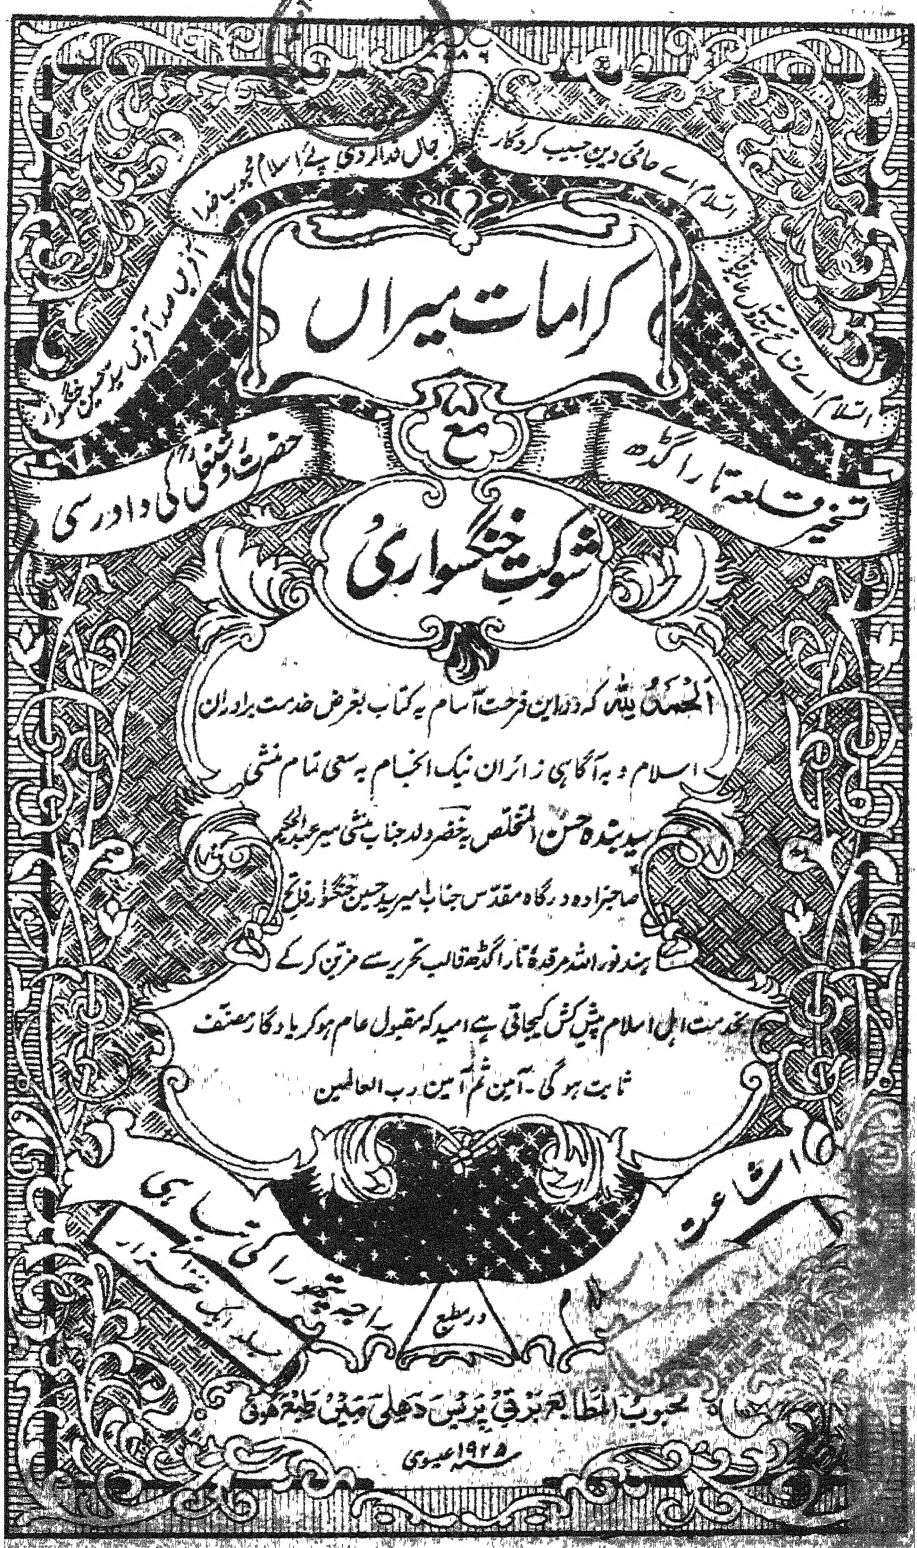 ۷۸۶
السلام اے حامئ دین حبیب کردگار
جاں فدا کردی پئے اسلام محبوب خدا
السلام اے
آفریں صد آفریں سید حسین خنگسوار
کرامات میراں
مع
تسخیر قلعہ تارا گڈھ
حضرت روشنعلی کی دادرسی
شوکتِ خنگسواری
الحمد للہ کہ دراین فرحت آسام یہ کتاب بغرض خدمت برادران
اسلام و بہ آگاہی زائران نیک انجام بہ سعی تمام منشی
سید بندہ حسن المتخلص بہ خضر ولد جناب منشی میر عبدالحکیم
صاحبزادہ درگاہ مقدس جناب میر سید حسین خنگسوار فاتح
ہند نور اللہ مرقدہٗ تارا گڈھ قالب تحریر سے مزین کرکے
بخدمت اہل اسلام پیش کش کیجاتی ہے امید کہ مقبول عام ہوکر یادگار مصنف
ثابت ہوگی۔ آمین ثم آمین رب العالمین
اشاعت اسلام
راجہ پتھورا کی تباہی
جلد ایک ہزار
در مطبع
محبوب المطابع برقی پریس دھلی میں طبع ھوئی
سنہ ۱۹۲۵ عیسوی